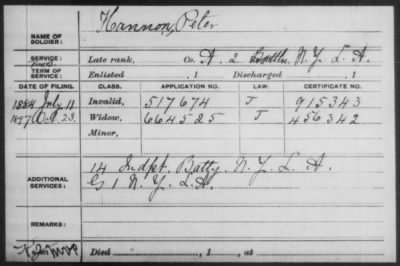 NAME OF SOLDIER: Hannon, Peter
SERVICE: Late rank, Co. A, 2 Battln. N.Y. L. A.
TERM OF SERVICE: Enlisted , 1 Discharged , 1
DATE OF FILING. CLASS. APPLICATION NO. LAW. CERTIFICATE NO.
1884 July 11 Invalid, 517674 J 915343
1897 Oct. 23. Widow, 664525 J 456342
Minor,
ADDITIONAL SERVICES: 14 Indpt. Batty. N.Y. L. A.
G 1 N.Y. L.A.
REMARKS:
Died , 1 , at